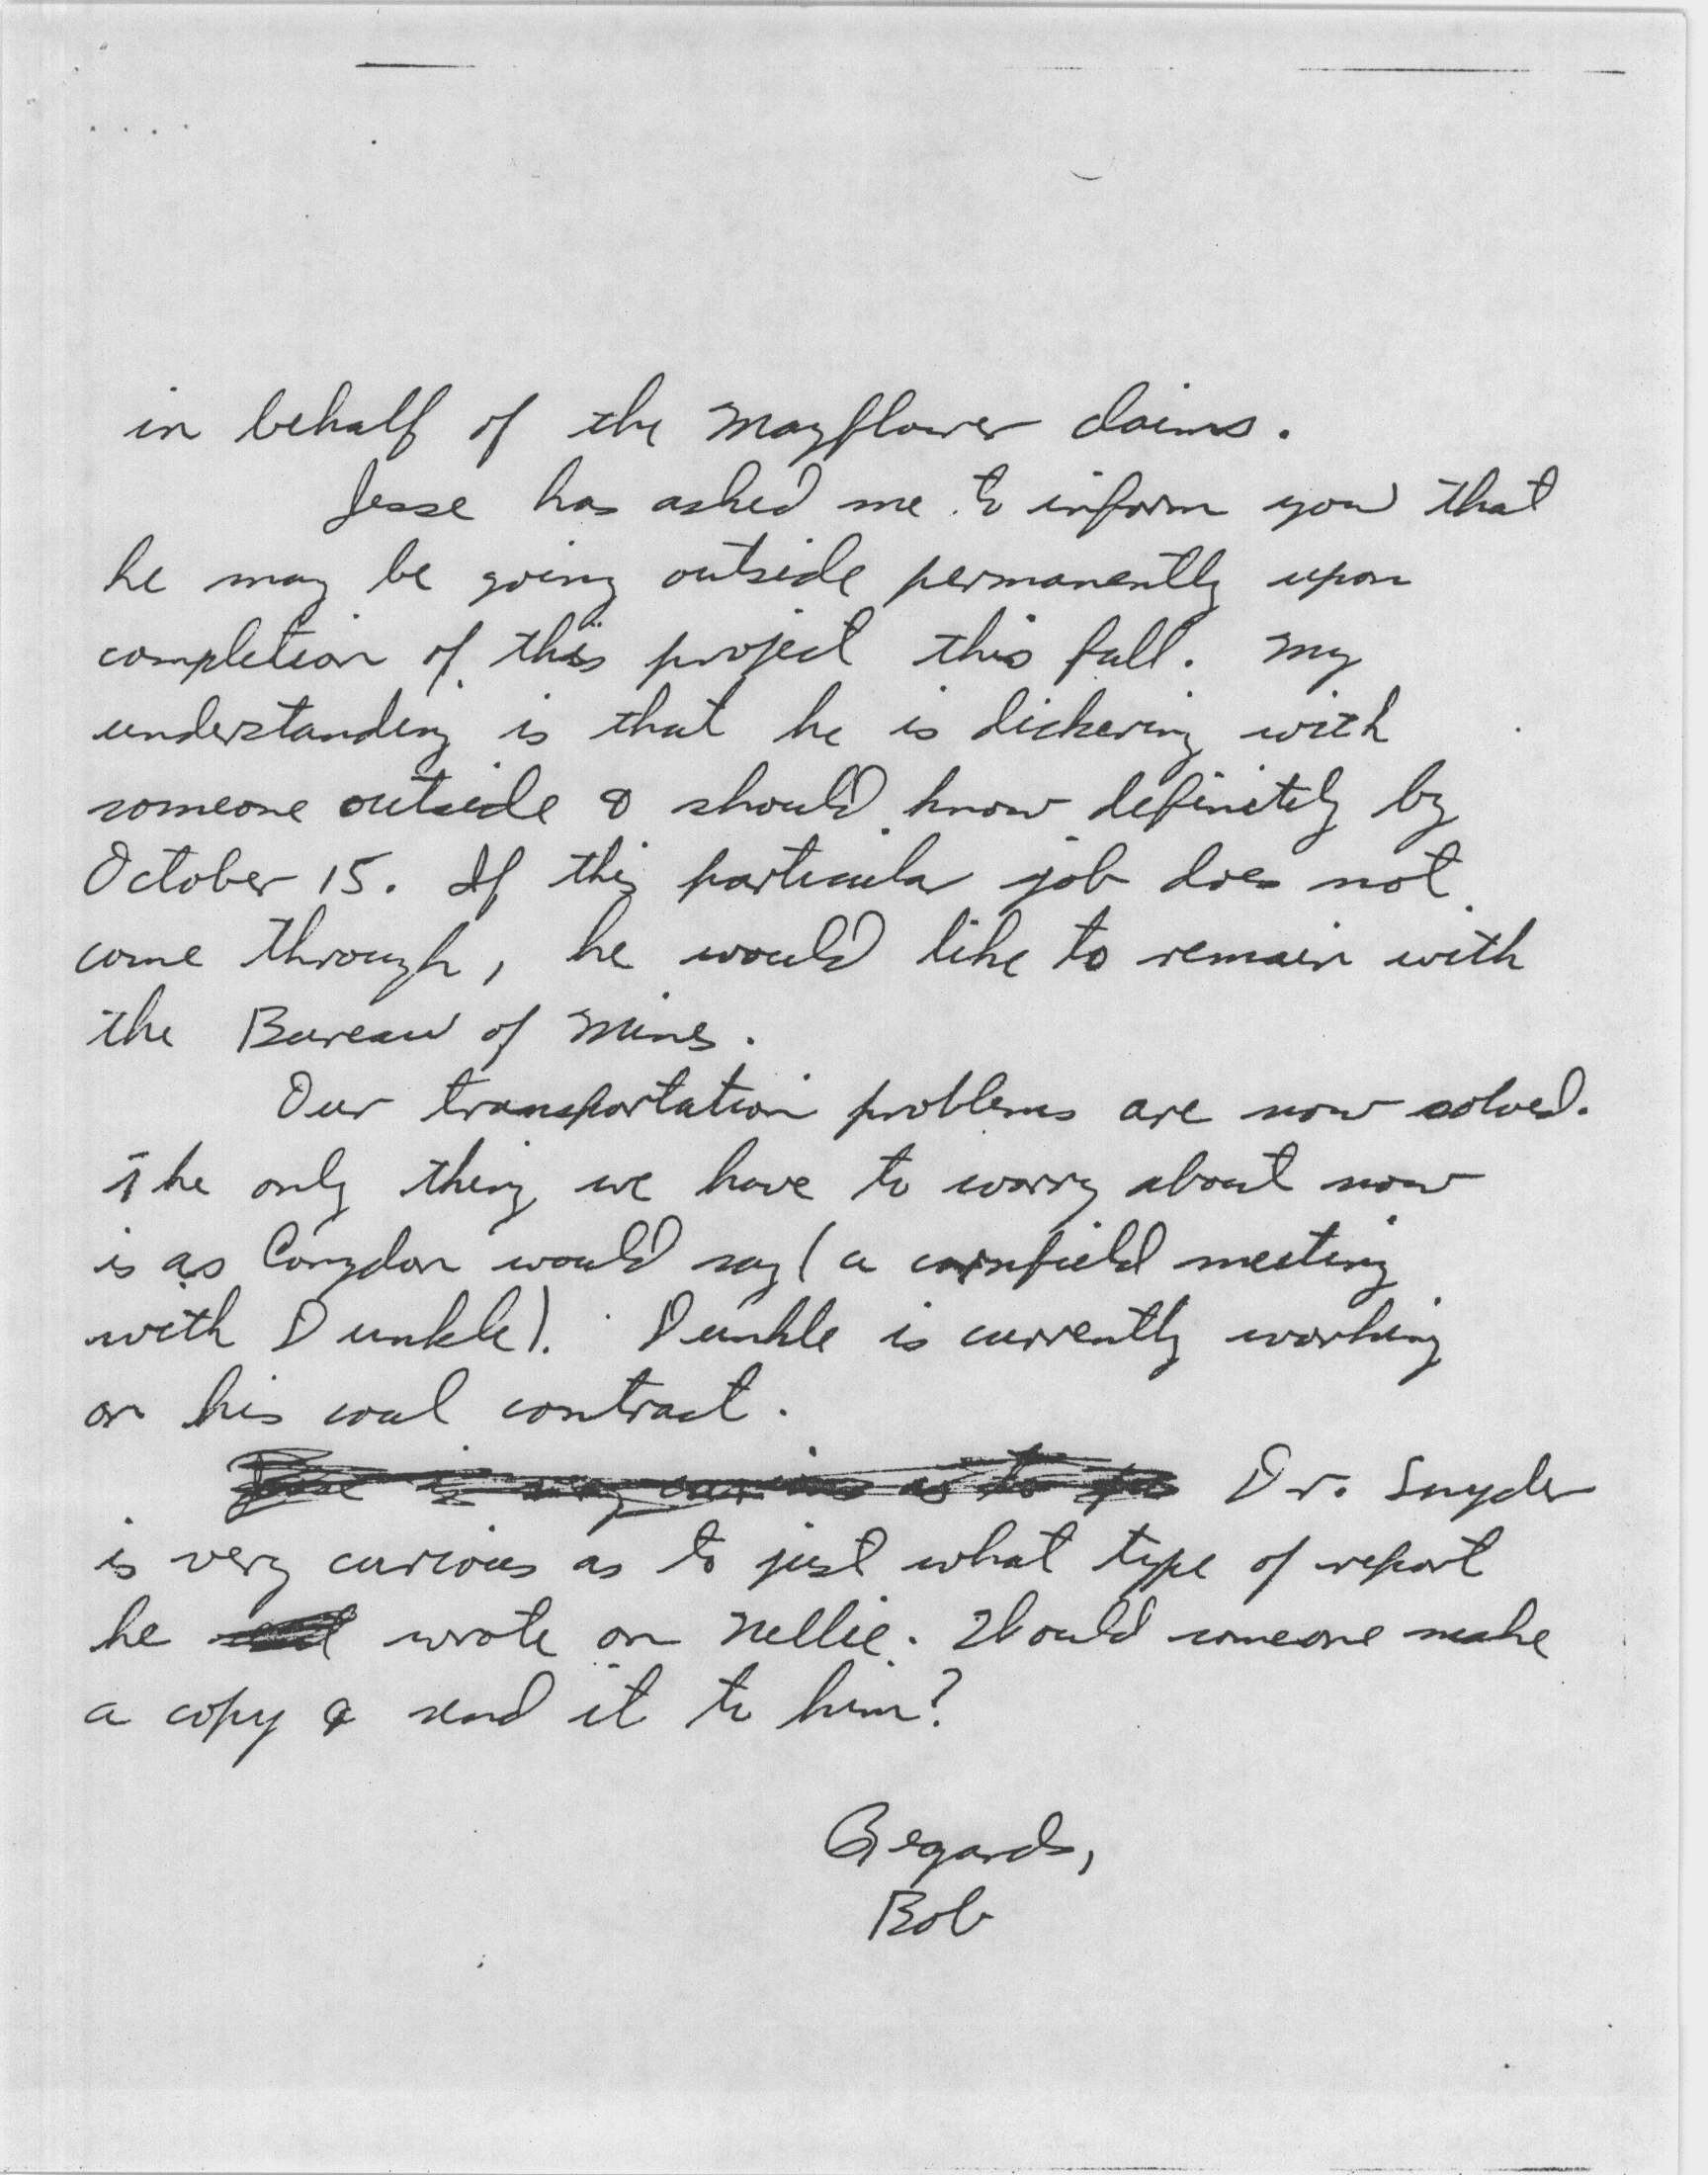 in behalf of the Mayflower claims.
Jesse has asked me to inform you that
he may be going outside permanently upon
completion of this project this fall. My
understanding is that he is dickering with
someone outside & should know definitely by
October 15. If this particular job does not
come through, he would like to remain with
the Bureau of Mines.
Our transportation problems are now solved.
The only thing we have to worry about now
is as Congdon would say (a cornfield meeting
with Dunkle). Dunkle is currently working
on his coal contract.
Dr. Snyder
is very curious as to just what type of report
he wrote on Nellie. Would someone make
a copy & send it to him?
Regards,
Bob